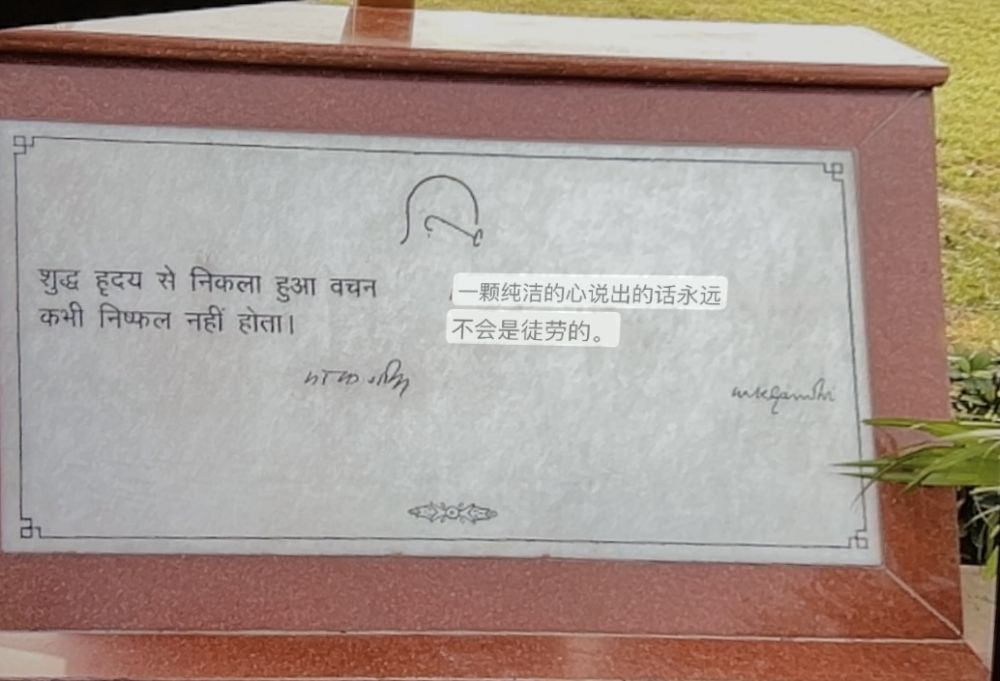 शुद्ध हृदय से निकला हुआ वचन
कभी निष्फल नहीं होता।
一颗纯洁的心说出的话永远
不会是徒劳的。
mkgandhi